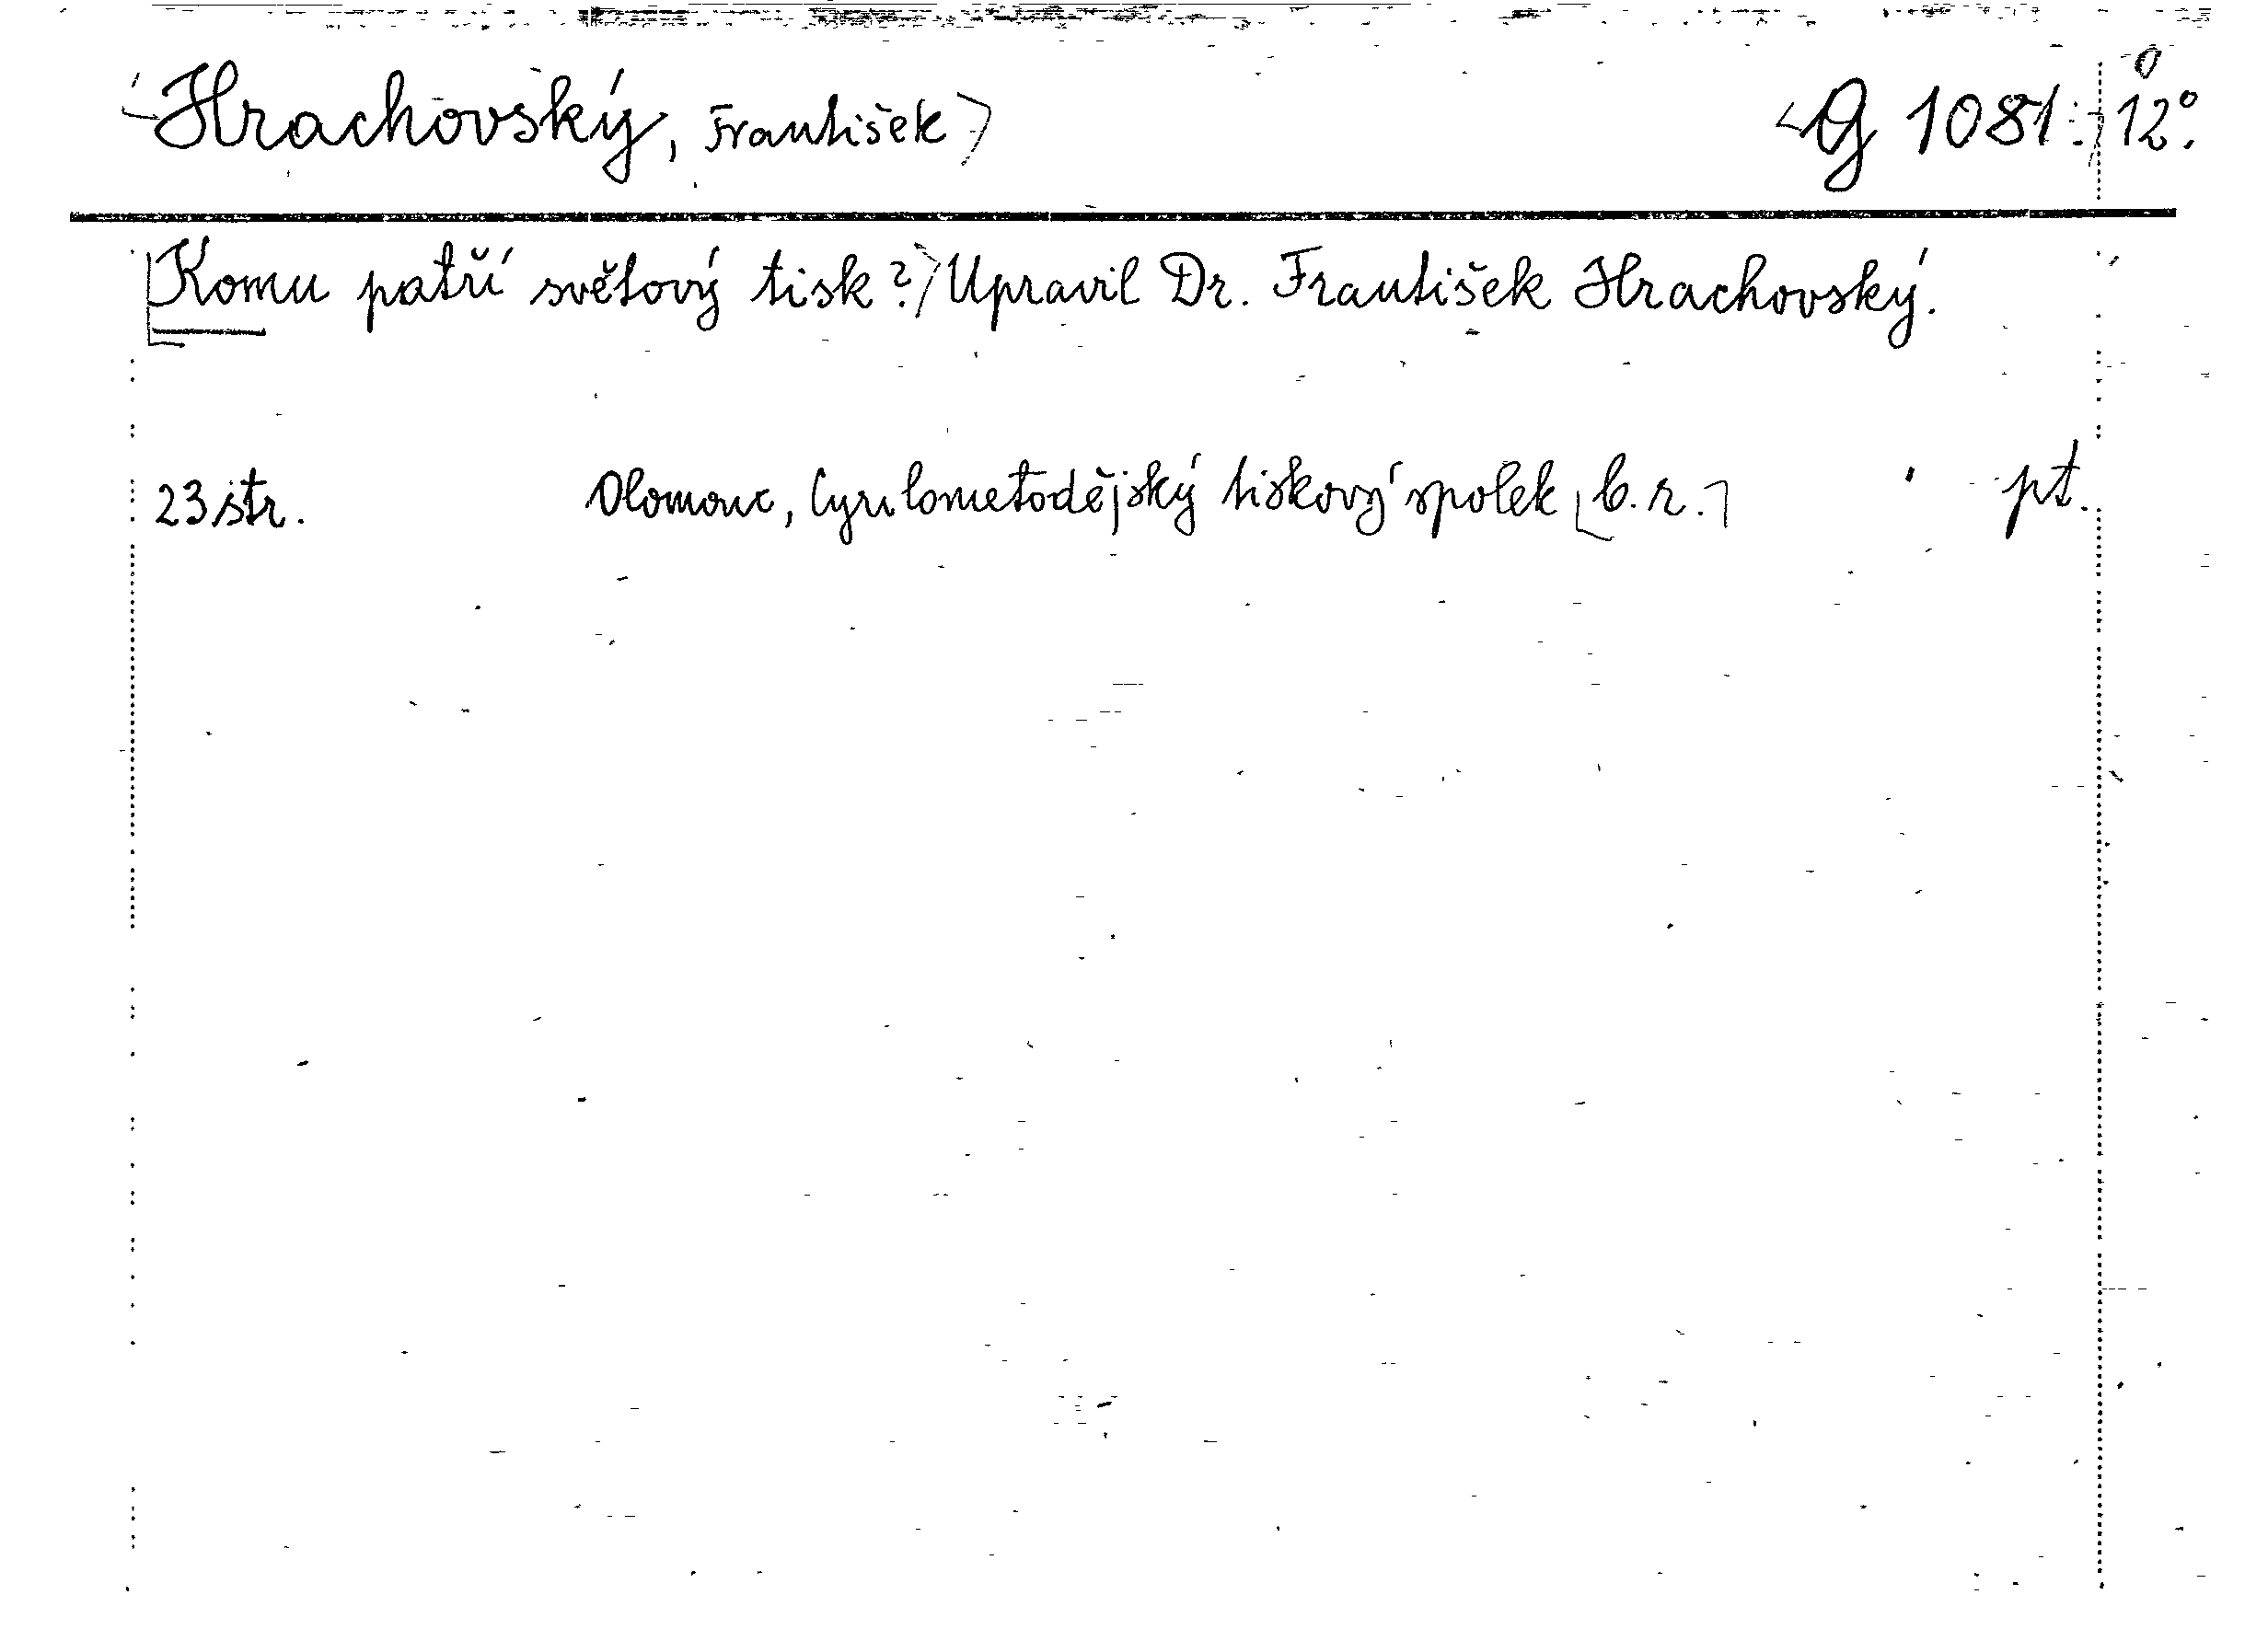 Hrachovský, František G 1081. 12°.
Komu patří světový tisk? Upravil Dr. František Hrachovský.
23 str. Olomouc, Cyrilometodějský tiskový spolek [b. r.] pt.